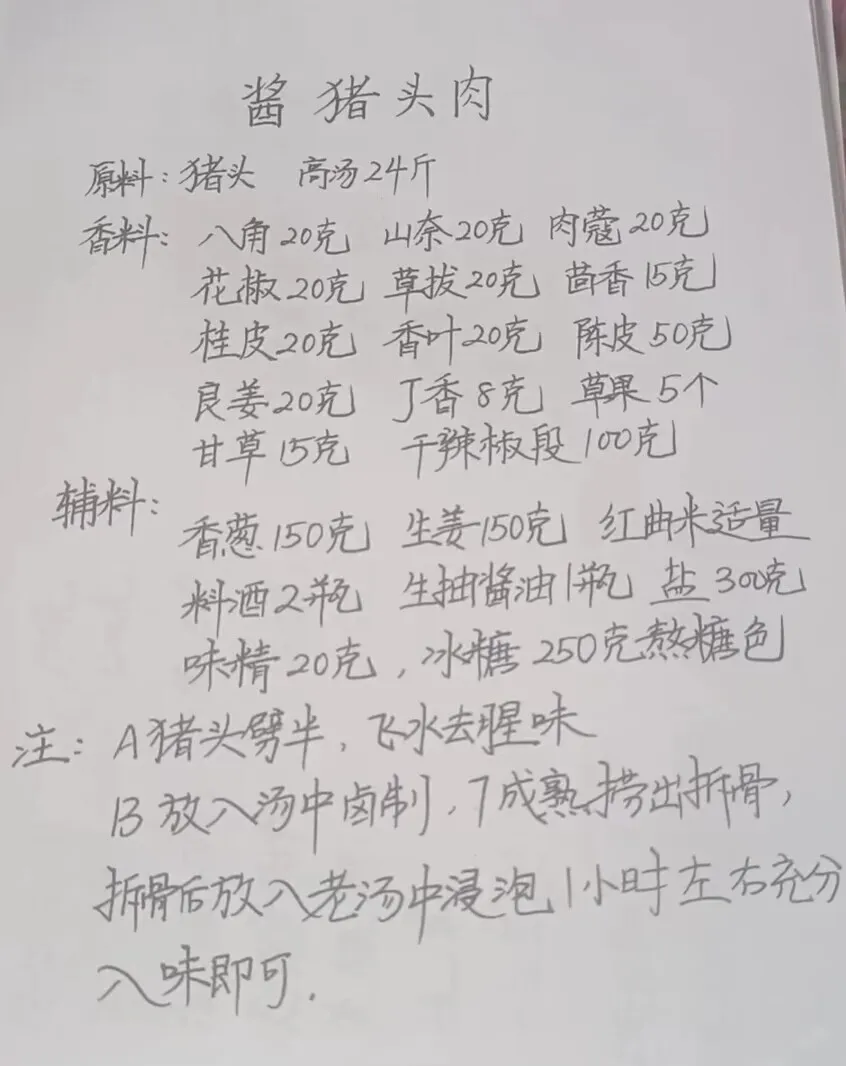 酱猪头肉
原料:猪头 高汤24斤
香料:八角20克 山奈20克 肉蔻20克
花椒20克 草拔20克 茴香15克
桂皮20克 香叶20克 陈皮50克
良姜20克 丁香8克 草果5个
甘草15克 干辣椒段100克
辅料:
香葱150克 生姜150克 红曲米适量
料酒2瓶 生抽酱油1瓶 盐300克
味精20克,冰糖250克熬糖色
注:A猪头劈半,飞水去腥味
B放入汤中卤制,7成熟捞出拆骨,
拆骨后放入老汤中浸泡1小时左右充分
入味即可.